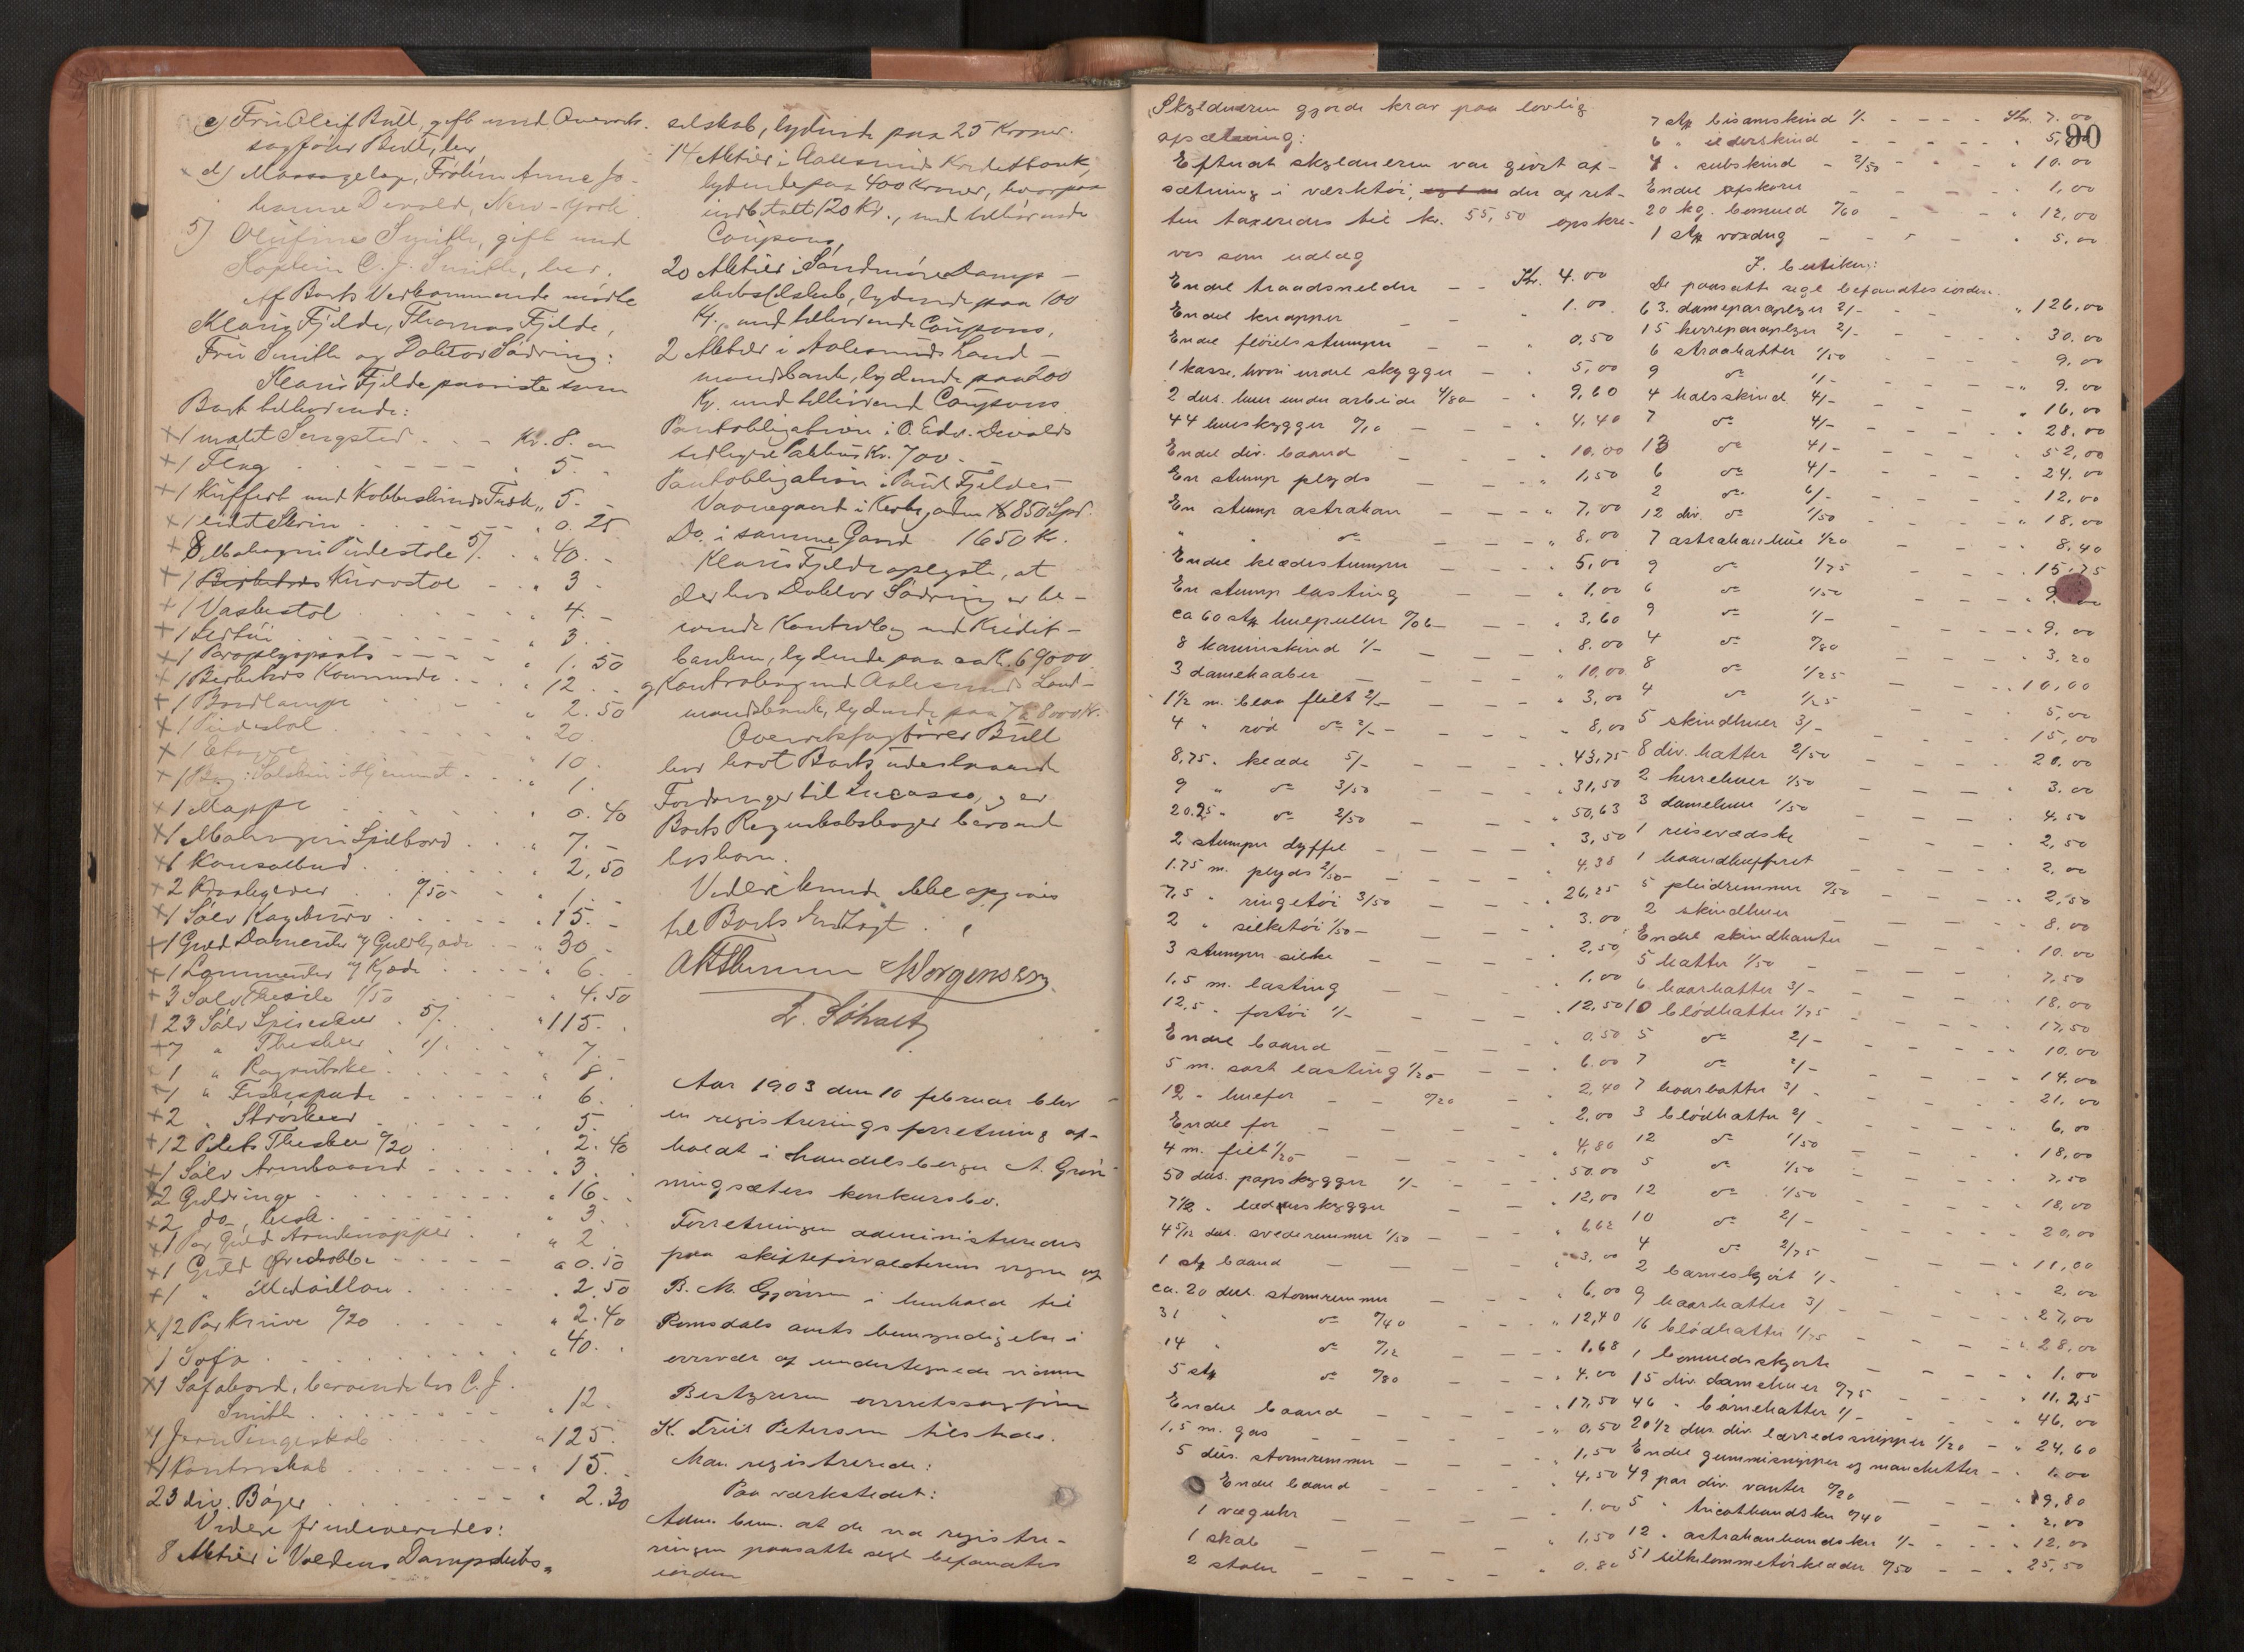 c) Fru Oleif Bull, gift med Overrets-
sagfører Bull, her
d) Massagelæge, Frøken Anna Jo-
hanne Devold, New-York
5) Olufine Smith, gift med
Kaptein C. J. Smith, her.
Af Boets Vedkommende mødte
Klaus Fjelde, Thomas Fjelde,
Fru Smith og Doktor Sødring:
Klaus Fjelde paaviste som
Boet tilhørende:
+ 1 malet Sengsted - - Kr. 8. 00
+ 1 Flag - - - - " 5. -
+ 1 Kuffert med Kobbeskinds Trek " 5. -
+ 1 lidet Skrin - - - " 0. 25
+ 8 Mahogni Pudestole 5/. " 40. -
+ 1 Kurvstol - " 3 -
+ 1 Vaskestol " 4. -
+ 1 " 3.
+ 1 Paraplyopsats - - - " 1. 50
+ 1 Birketræs Kommode " 12
+ 1 Bordlampe " 2. 50
+ 1 Pudestol " 20.
+ 1 Etagere " 10.
+ 1 Bog: Solskin i Hjemmet " 1.
+ 1 Mappe " 0. 40
+ 1 Mahogni Spilbord " 7. -
+ 1 Konsolbord " 2,50
+ 2 0/50 " 1. -
+ 1 Sølv Kagekurv " 15. -
+ 1 Guld Dameuhr og Guldkjæde " 30 -
+ 1 Lommeuhr og Kjæde " 6.
+ 3 Sølv 1/50 " 4.50
+ 23 Sølv Spiseskeer 5/. " 115.
+ 7 " Theskeer 1/. " 7. -
+ 1 " Ragoutske " 8.
+ 1 " Fiskespade " 6.
+ 2 " Strøskeer 5.
+ 12 Plets Theskeer 0/20 2. 40
+ 1 Sølv Armbaand " 3
+ 2 Guldringe " 16.
+ 2 do " 3.
+ 1 Par Guld Armknapper " 2
+ 1 Guld " 0.50
+ 1 " Medaillon " 2.50
+ 12 Par Knive 0/20 " 2.40
1 Sofa " 40.
+ 1 Sofabord, beroende hos C. J.
Smith " 12.
+ 1 Jern Pengeskab " 125.
+ 1 Kontorskab " 15. -
23 div. Bøger " 2.30
Videre fremleveredes:
8 Aktier i Voldens Dampskibs-
selskab, lydende paa 25 Kroner.
14 Aktier i Aalesunds Kreditbank,
lydende paa 400 Kroner, hvorpaa
indbetalt 120 Kr., med tilhørende
Coupons,
20 Aktier i Søndmøre Damp-
skibsselskab, lydende paa 100
Kr., med tilhørende Coupons,
2 Aktier i Aalesunds Land-
mandsbank, lydende paa 200
Kr. med tilhørende Coupons
Pantobligation i O. Edv. Devolds
tidligere Pakhus Kr. 700 -
Pantobligation i Paul Fjeldes
Vaanegaard i Kirkegaden 850 Spd.
Do. i samme Gaard 1650 Kr.
Klaus Fjelde oplyste, at
der hos Doktor Sødring er be-
roende Kontrabog med Kredit-
banken, lydende paa ca Kr. 69000
og Kontrabog med Aalesunds Land-
mandsbank, lydende paa 8000 Kr.
Overretssagfører Bull
har havt Boets udestaaende
Fordringer til Incasso, og er
Boets Regnskabsbøger beroende
hos ham.
Videre kunde ikke opgives
til Boets Indtægt.
Jørgensen
L. Søholt
Aar 1903 den 10 februar blev
en registreringsforretning af-
holdt i handelsborger A. Grøn-
ningsæters konkursbo.
Forretningen administreredes
paa skifteforvalterens vegne af
B. M. Gjørven i henhold til
Romsdals amts bemyndigelse i
overvær af undertegnede vidner
Bestyreren overretssagfører
K. Friis Petersen tilstede.
Man registrerede:
Paa værkstedet:
Adm. bem. at de ved registre-
ringen paasatte segl befandtes
iorden
Skyldneren gjorde krav paa lovlig
afsætning:
Efterat skyldneren var givet af-
sætning i værktøi, der af ret-
ten taxeredes til kr. 55,50 opskre-
ves som udlæg
Endel traadsneller - - Kr. 4.00
Endel knapper - - " 1.00
Endel fløielsstumper - - " 0,50
1 kasse, hvori endel skygger - " 5,00
2 dus. huer under arbeide 4/80 - " 9,60
44 hueskygger 0/10 - - " 4,40
Endel div. baand - - " 10,00
En stump plyds - - " 1,50
En stump astrakan - - " 7,00
" " do - - " 8,00
Endel klædestumper - - " 5,00
En stump lasting - - " 1,00
ca 60 stk huepuller 0/06 - - " 3,60
8 kaninskind 1/- - - " 8.00
3 damekaaber - - " 10,00
1 1/2 m. blaa filt 2/- - - " 3,00
4 " rød do 2/- - - " 8,00
8,75 " klæde 5/- - - " 43,75
9 " do 3/50 - - " 31,50
20.25 " do 2/50 - - " 50,63
2 stumper dyffel - - " 3,50
1.75 m. plyds 2/50 - - " 4,38
7,5 " ringetøi 3/50 - - " 26,25
2 " silketøi 1/50 - - " 3.00
3 stumper silke - - " 2,50
1,5 m. lasting - - " 1.00
12,5 " fortøi 1/- - - " 12,50
Endel baand - - " 0,50
5 m. sort lasting 1/20 - - " 6.00
12 " huefor - - 0/20 - " 2,40
Endel for - - " 2,00
4 m. filt 1/20 - - " 4,80
50 dus. papskygger 1/- - - " 50.00
7 1/2 " læderskygger - - " 12,00
4 5/12 dus. svederemmer 1/50 - - " 6,62
1 stk baand - - " 3,00
ca. 20 dus. stormremmer - - " 6,00
31 " do 0/40 - - " 12,40
14 " do 0/12 - - " 1,68
5 stk do 0/80 - - " 4.00
Endel baand - - " 17,50
1,5 m. gas - - " 0,50
5 dus. stormremmer - - " 1,50
Endel baand - - " 4,50
1 væguhr - - " 1.00
1 skab - - " 1,50
2 stoler - - " 0,80
90
7 stk bisamskind 1/- - - Kr. 7.00
6 " ilderskind - - " 5,00
4 " subskind - 2/50 - - " 10.00
Endel afskorer - - " 1,00
20 kg. bomuld 0/60 - - " 12,00
1 stk voxdug - - " 5,00
I butiken:
De paasatte segl befandtes iorden.
63 dameparaplyer 2/- " 126,00
15 herreparaplyer 2/- - - 30.00
6 straahatter 1/50 - - 9.00
9 do 1/- - - " 9.00
4 halsskind 4/- - - " 16,00
7 do 4/- - - " 28,00
13 do 4/- - - " 52,00
6 do 4/- - - " 24,00
2 do 6/- - - " 12,00
12 div. do 1/50 - - " 18,00
7 astrakanhuer 1/20 - - " 8,40
9 do 1/75 - - " 15,75
6 do 1/50 - - 9.00
9 do 1/- - - " 9.00
4 do 0/80 - - " 3,20
8 do 1/25 - - " 10,00
4 do 1/25 - - " 5,00
5 skindhuer 3/- - - " 15,00
8 div. hatter 2/50 - - " 20.00
2 herrehuer 1/50 - - " 3.00
3 damehuer 1/50 - - " 4.50
1 reisevædske - - " 2,50
1 haandkuffert - - " 2,00
5 pleidremmer 0/50 - - " 2,50
2 skindhuer - - " 8.00
Endel skindkanter - - " 10.00
5 hatter 1/50 - - " 7,50
6 haarhatter 3/- - - " 18.00
10 blødhatter 1/75 - - " 17,50
5 do 2/- - - " 10.00
7 do 2/- - - " 14,00
7 haarhatter 3/- - - " 21.00
3 blødhatter 2/- - - " 6,00
12 do 1/50 - - " 18,00
5 do 1/50 - - " 7,50
12 do 1/50 - - " 18,00
10 do 2/- - - " 20,00
4 do 2/75 - - " 11,00
2 barneskjørt 1/- - - " 2,00
9 haarhatter 3/- - - " 27,00
16 blødhatter 1/75 - - " 28,00
1 bomuldsskjorte - - " 1.00
15 div. damehuer 0/75 - - " 11.25
46 " børnehatter 1/- - - " 46,00
20 1/2 dus. div. lærredssnipper 1/20 - " 24,60
Endel gummisnipper og manchetter - " 1.00
49 par div. vanter 0/20 - - " 9,80
5 " tricothandsker 0/40 - - " 2.00
12 " astrakanhandsker 1/- - - " 12,00
51 silkelommetørklæder 0/50 - - " 25,50